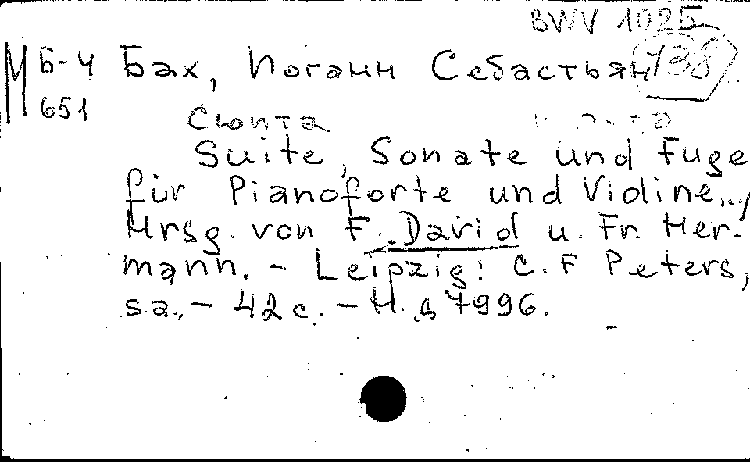 BWV 1025
М Б-4 Бах, Иоганн Себастьян 138
651
Сюита
Suite, Sonate und Fuge
für Pianoforte und Violine...,
Hrsg. von F. David u. Fr. Her-
mann. - Leipzig: C. F Peters,
s.a. - 42 с. - Н. д 7996.